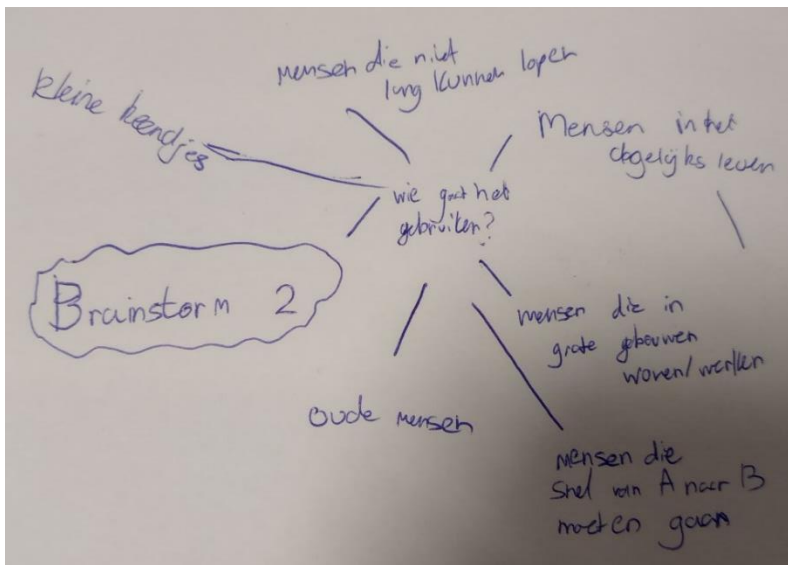 mensen die niet
lang kunnen lopen
kleine keendjes
Mensen in het
dagelijks leven
wie gaat het
gebruiken?
Brainstorm 2
mensen die in
grote gebouwen
wonen/werken
oude mensen
mensen die
snel van A naar B
moeten gaan